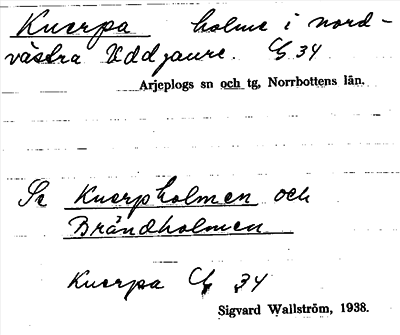 Knerpa holme i nord-
västra Uddjaure. 34
Arjeplogs sn och tg, Norrbottens län.
Se Knerpholmen och
Brändholmen
Knerpa 34
Sigvard Wallström, 1938.